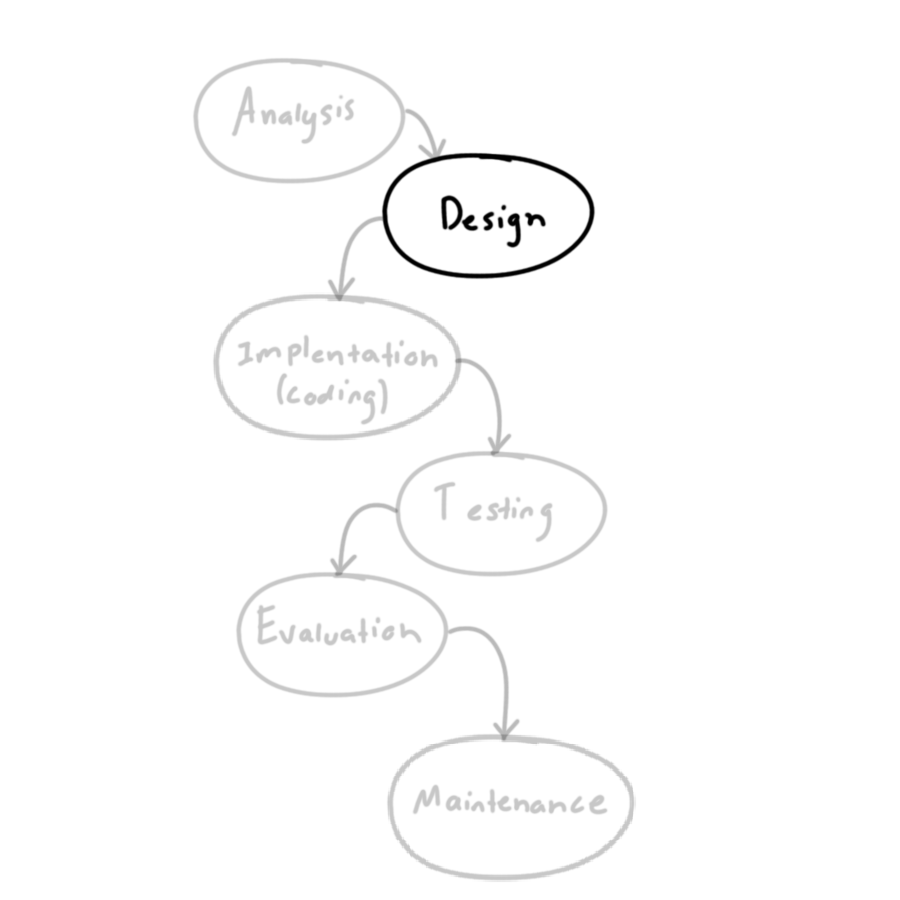 Analysis
Design
Implentation
(coding)
Testing
Evaluation
Maintenance